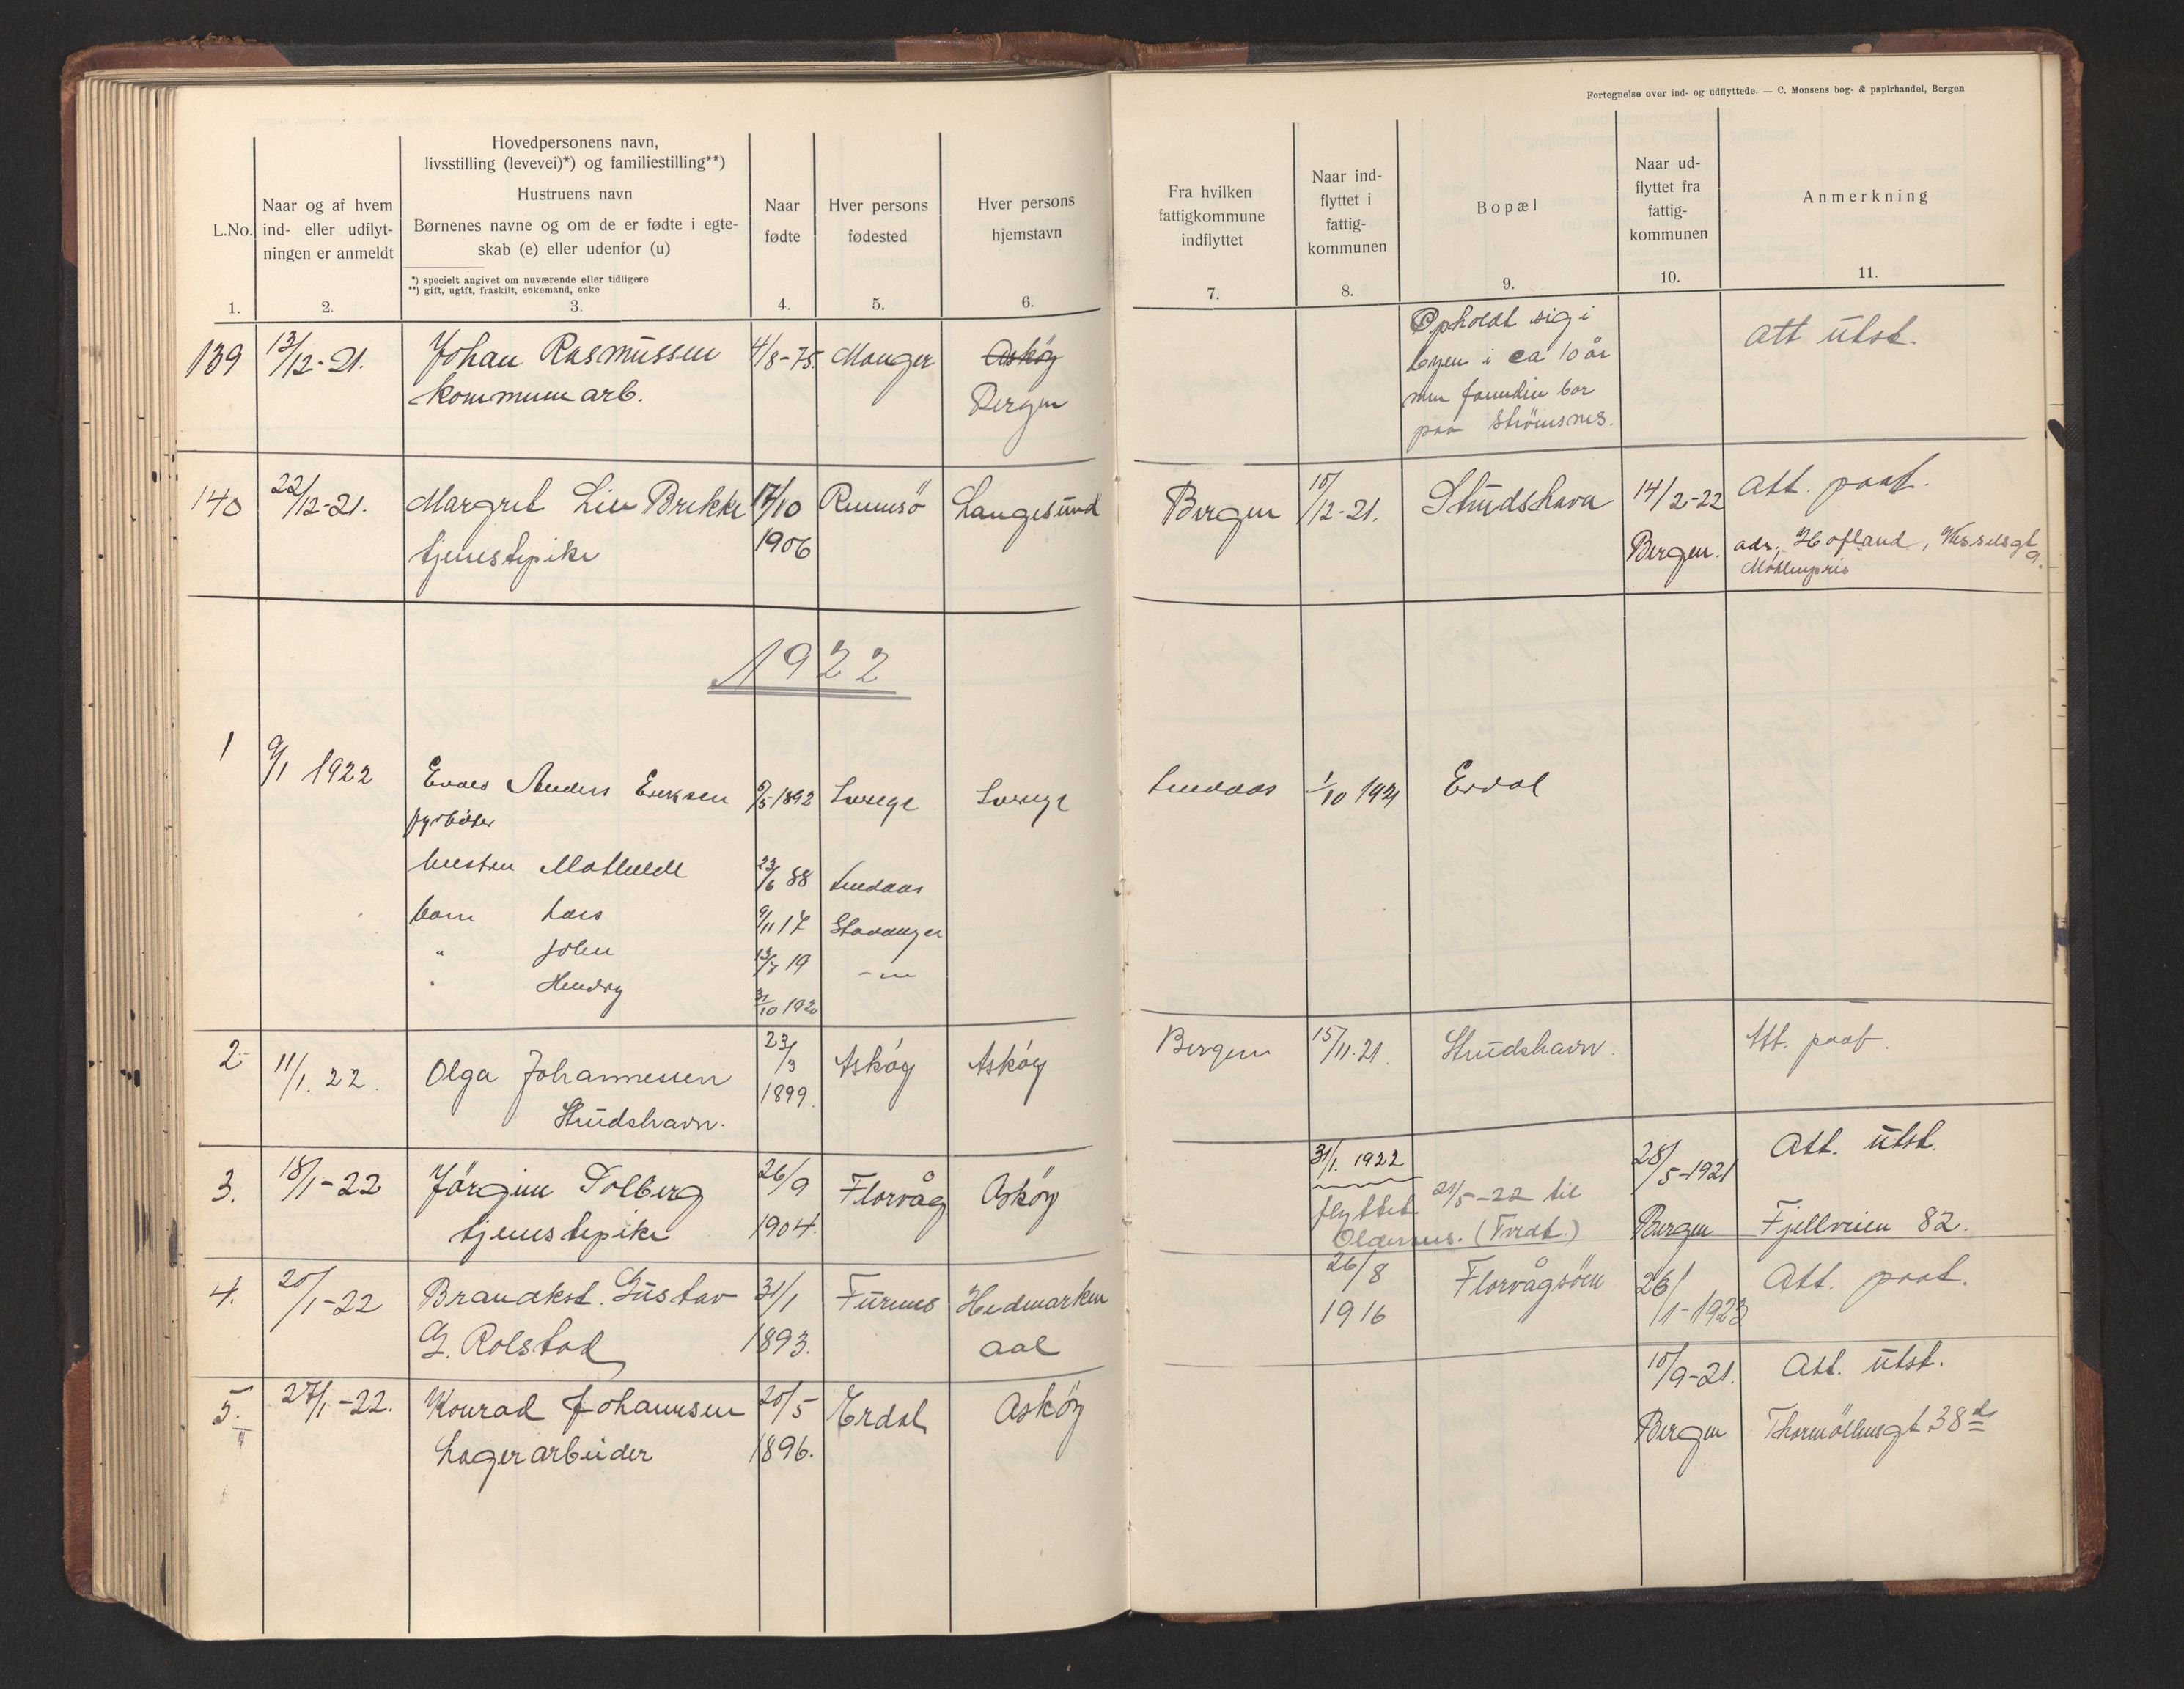 Fortegnelse over ind- og udflyttede. — C. Monsens bog- & papirhandel, Bergen
L.No.
1.
Naar og af hvem
ind- eller udflyt-
ningen er anmeldt
2.
Hovedpersonens navn,
livsstilling (levevei)*) og familiestilling**)
Hustruens navn
Børnenes navne og om de er fødte i egte-
skab (e) eller udenfor (u)
*) specielt angivet om nuværende eller tidligere
**) gift, ugift, fraskilt, enkemand, enke
3.
Naar
fødte
4.
Hver persons
fødested
5.
Hver persons
hjemstavn
6.
Fra hvilken
fattigkommune
indflyttet
7.
Naar ind-
flyttet i
fattig-
kommunen
8.
Bopæl
9.
Naar ud-
flyttet fra
fattig-
kommunen
10.
Anmerkning
11.
139 13/12-21. Johan Rasmussen 4/8-75. Manger Askøy
kommunearb. Bergen
Opholdt sig i
byen i ca 10 år
men familien bor
paa Strömsnes.
Att utst.
140 22/12-21. Margret Lie Brekke 17/10 Rennesö Langesund
tjenestepike 1906
Bergen 10/12-21. Strudshavn 14/2-22 Att. paat.
Bergen. adr. Hofland, Wesselsgt 9.
Möhlenpris
1922
1 9/1 1922 Anders Eriksen 9/5 1892 Sverige Sverige
fyrböter
hustru Mathilde 23/6 88 Lindaas
barn Lars 9/11 17 Stavanger
" John 13/7 19 - " -
" Hendry 3/10 1920
Lindaas 1/10 1921 Erdal
2 11/1. 22. Olga Johannessen 23/3 Askøy Askøy
Strudshavn. 1899.
Bergen 15/11. 21. Strudshavn. Att. paat.
3. 18/1-22 Jörgine Solberg 26/9 Florvåg Askøy
tjenestepike 1904.
31/1. 1922 28/5-1921 Att. utst.
flyttet 21/5-22 til Bergen Fjellveien 82.
Oldernes. (Tvedt.)
4. 20/1-22 Brandkst. Gustav 31/1 Furnes Hedmarken
G. Rolstad 1893. Aal
26/8 Florvågsöen 26/ Att. paat.
1916 1-1923
5. 27/1-22. Konrad Johannesen 20/5 Erdal Askøy
Lagerarbeider 1896.
10/9-21. Att. utst.
Bergen Thormöhlensgt 38 d